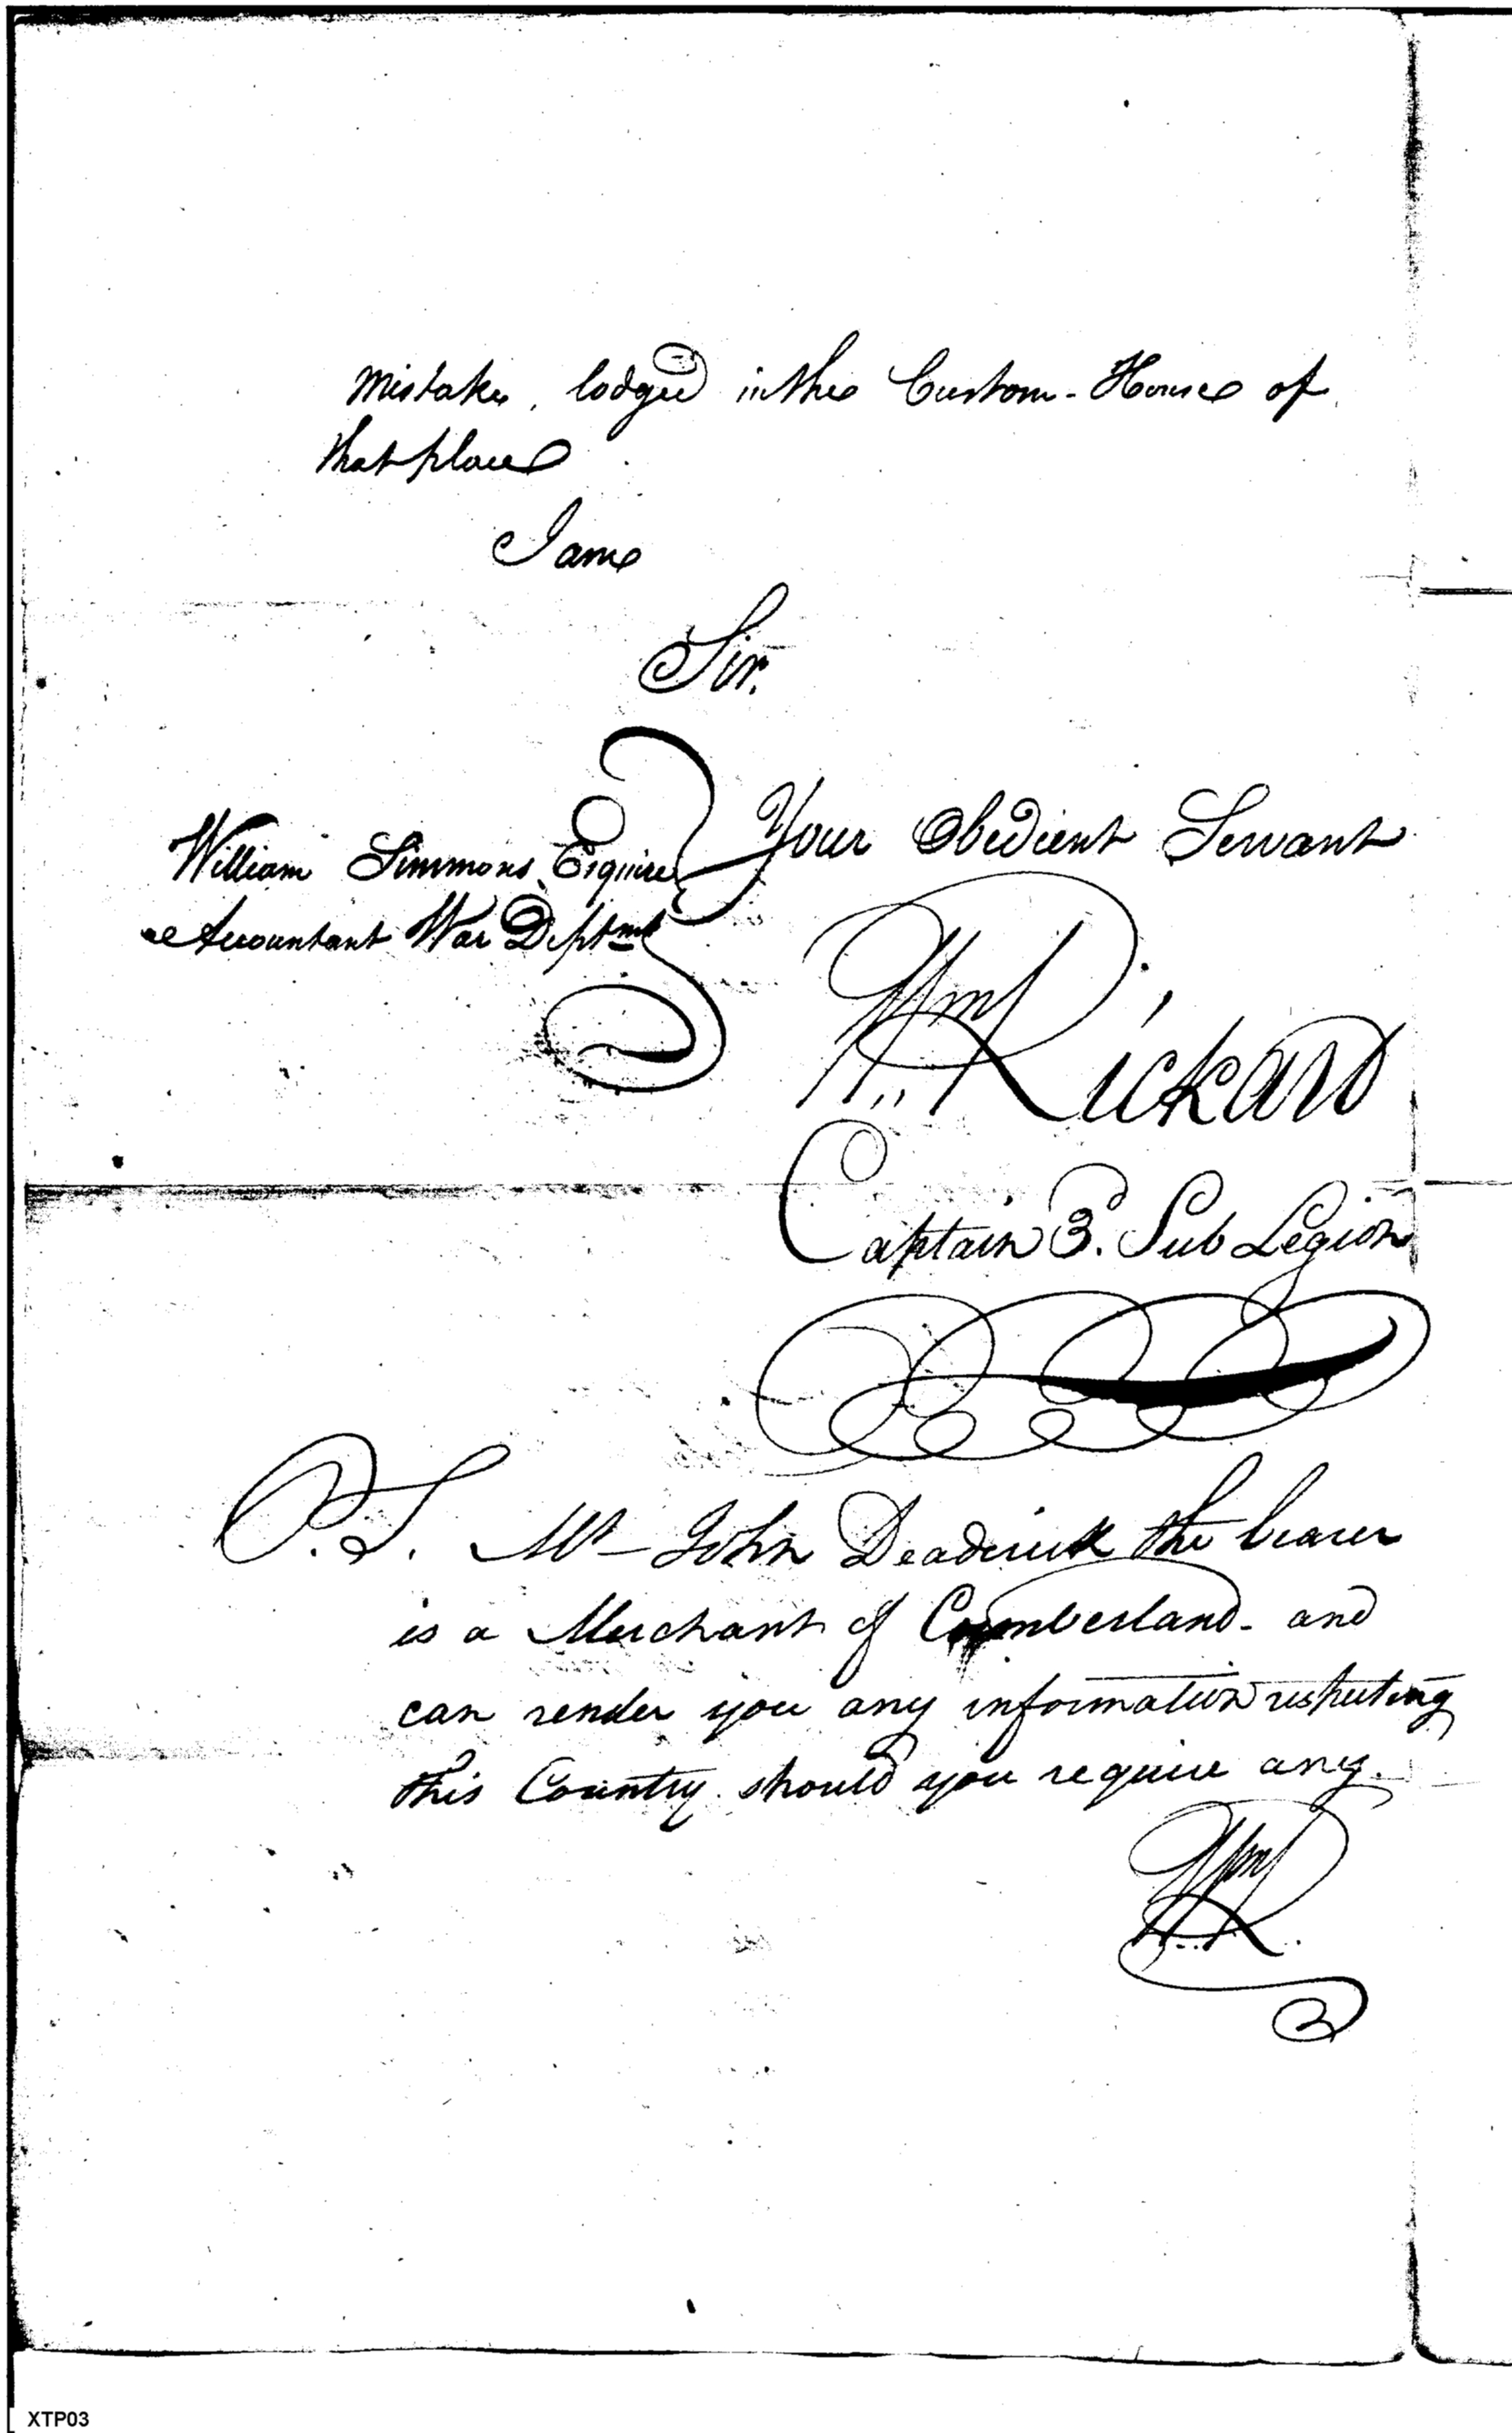 mistake, lodged in the Custom-House of
that place
I am
Sir.
Your Obedient Servant
William Simmons, Esquire
Accountant War Deptmt
Wm Rickard
Captain 3d. Sub Legion
P.S. Mr- John Deaderick the bearer
is a Merchant of Cumberland- and
can render you any information respecting
this Country should you require any.
Wm R.
XTP03